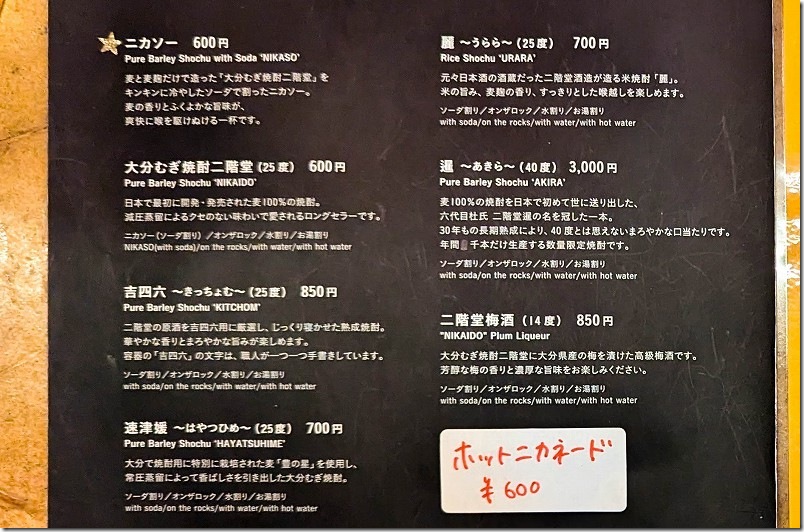 ニカソー 600円
Pure Barley Shochu with Soda 'NIKASO'
麦と麦麹だけで造った「大分むぎ焼酎二階堂」を
キンキンに冷やしたソーダで割ったニカソー。
麦の香りとふくよかな旨味が、
爽快に喉を駆けぬける一杯です。
大分むぎ焼酎二階堂(25度) 600円
Pure Barley Shochu 'NIKAIDO'
日本で最初に開発・発売された麦100%の焼酎。
減圧蒸留によるクセのない味わいで愛されるロングセラーです。
ニカソー(ソーダ割り)/オンザロック/水割り/お湯割り
NIKASO(with soda)/on the rocks/with water/with hot water
吉四六 〜きっちょむ〜(25度) 850円
Pure Barley Shochu 'KITCHOM'
二階堂の原酒を吉四六用に厳選し、じっくり寝かせた熟成焼酎。
華やかな香りとまろやかな旨みが楽しめます。
容器の「吉四六」の文字は、職人が一つ一つ手書きしています。
ソーダ割り/オンザロック/水割り/お湯割り
with soda/on the rocks/with water/with hot water
速津媛 〜はやつひめ〜(25度) 700円
Pure Barley Shochu 'HAYATSUHIME'
大分で焼酎用に特別に栽培された麦「豊の星」を使用し、
常圧蒸留によって香ばしさを引き出した大分むぎ焼酎。
ソーダ割り/オンザロック/水割り/お湯割り
with soda/on the rocks/with water/with hot water
麗 〜うらら〜(25度) 700円
Rice Shochu 'URARA'
元々日本酒の酒蔵だった二階堂酒造が造る米焼酎「麗」。
米の旨み、麦麹の香り、すっきりとした喉越しを楽しめます。
ソーダ割り/オンザロック/水割り/お湯割り
with soda/on the rocks/with water/with hot water
暹 〜あきら〜(40度) 3,000円
Pure Barley Shochu 'AKIRA'
麦100%の焼酎を日本で初めて世に送り出した、
六代目杜氏 二階堂暹の名を冠した一本。
30年もの長期熟成により、40度とは思えないまろやかな口当たりです。
年間 千本だけ生産する数量限定焼酎です。
ソーダ割り/オンザロック/水割り/お湯割り
with soda/on the rocks/with water/with hot water
二階堂梅酒(14度) 850円
"NIKAIDO" Plum Liqueur
大分むぎ焼酎二階堂に大分県産の梅を漬けた高級梅酒です。
芳醇な梅の香りと濃厚な旨味をお楽しみください。
ソーダ割り/オンザロック/水割り/お湯割り
with soda/on the rocks/with water/with hot water
ホットニカネード
¥600